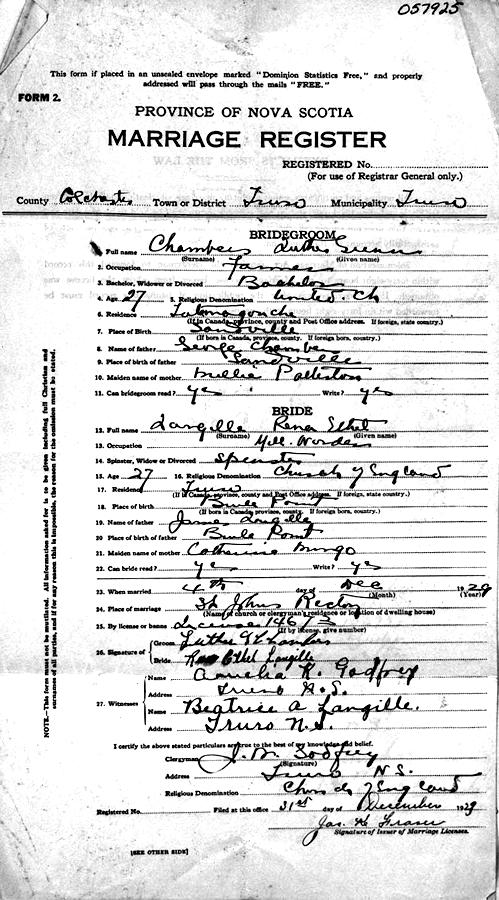 057925
This form if placed in an unsealed envelope marked "Dominion Statistics Free," and properly
addressed will pass through the mails "FREE."
FORM 2.
PROVINCE OF NOVA SCOTIA
MARRIAGE REGISTER
REGISTERED No.
(For use of Registrar General only.)
County Colchester Town or District Truro Municipality Truro
BRIDEGROOM
1. Full name Chambers Luther
(Surname) (Given name)
2. Occupation Farmer
3. Bachelor, Widower or Divorced Bachelor
4. Age 27 5. Religious Denomination United Ch
6. Residence Tatamagouche
(If in Canada, province, county and Post Office address. If foreign, state country.)
7. Place of Birth
(If born in Canada, province, county. If foreign born, country.)
8. Name of father George Chambers
9. Place of birth of father
10. Maiden name of mother Patterson
11. Can bridegroom read? yes Write? yes
BRIDE
12. Full name Langille Rena Ethel
(Surname) (Given name)
13. Occupation Mill Worker
14. Spinster, Widow or Divorced Spinster
15. Age 27 16. Religious Denomination Church of England
17. Residence Truro
(If in Canada, province, county and Post Office address. If foreign, state country.)
18. Place of Birth Brule Point
(If born in Canada, province, county. If foreign born, country.)
19. Name of father James Langille
20. Place of birth of father Brule Point
21. Maiden name of mother Catherine
22. Can bride read? yes Write? yes
23. When married 4th day of Dec 1929
(Month) (Year)
24. Place of marriage St Johns Rectory
(Name of church or clergyman's residence or location of dwelling house)
25. By license or banns License 14673
(If by license, give number)
26. Signature of Groom Luther Chambers
Bride Ethel Langille
27. Witnesses Name Amelia R. Godfrey
Address Truro N.S.
Name Beatrice A Langille.
Address Truro N.S.
I certify the above stated particulars are true to the best of my knowledge and belief.
Clergyman J. M. Godfrey
(Signature)
Address Truro N.S.
Religious Denomination Church of England
Registered No. Filed at this office 31st day of December 1929
Jas. Fraser
Signature of Issuer of Marriage Licenses.
[SEE OTHER SIDE]
NOTE.—This form must not be mutilated. All information asked for is to be given including full Christian and
surnames of all parties, and if for any reason this is impossible, the reason for the omission must be stated.